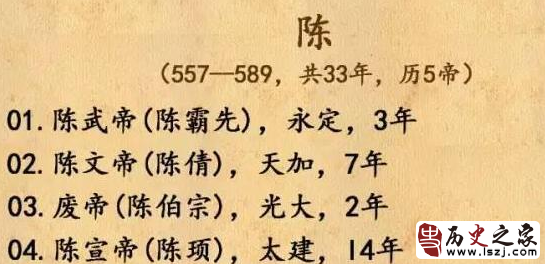 陈
（557—589，共33年，历5帝）
01.陈武帝(陈霸先)，永定，3年
02.陈文帝(陈倩)，天加，7年
03.废帝(陈伯宗)，光大，2年
04.陈宣帝(陈顼)，太建，14年
史 历史之家
www.lszj.com